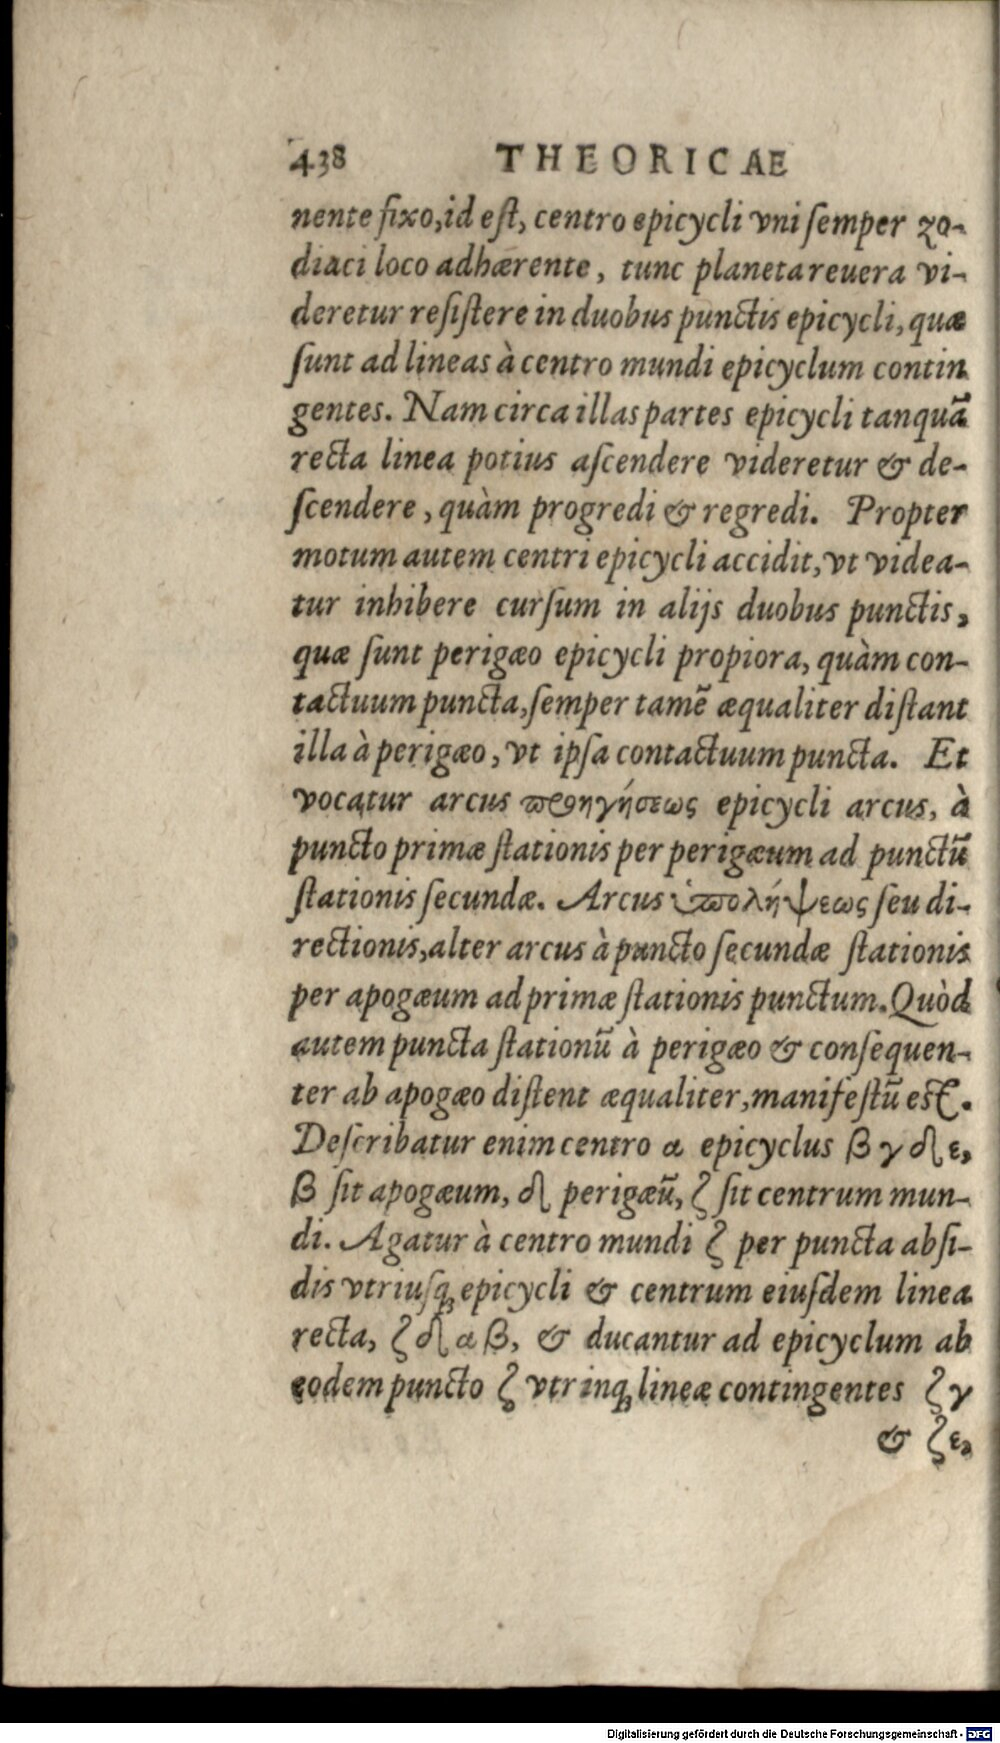 438 THEORICAE
nente fixo, id eſt, centro epicycli vni ſemper zo-
diaci loco adhærente, tunc planeta reuera vi-
deretur reſiſtere in duobus punctis epicycli, quæ
ſunt ad lineas à centro mundi epicyclum contin
gentes. Nam circa illas partes epicycli tanquã
recta linea potius aſcendere videretur & de-
ſcendere, quàm progredi & regredi. Propter
motum autem centri epicycli accidit, vt videa-
tur inhibere curſum in alijs duobus punctis,
quæ ſunt perigæo epicycli propiora, quàm con-
tactuum puncta, ſemper tamẽ æqualiter diſtant
illa à perigæo, vt ipſa contactuum puncta. Et
vocatur arcus προηγήσεως epicycli arcus, à
puncto primæ ſtationis per perigæum ad punctũ
ſtationis ſecundæ. Arcus ὑπολήψεως ſeu di-
rectionis, alter arcus à puncto ſecundæ ſtationis
per apogæum ad primæ ſtationis punctum. Quòd
autem puncta ſtationũ à perigæo & conſequen-
ter ab apogæo diſtent æqualiter, manifeſtũ eſt.
Deſcribatur enim centro α epicyclus β γ δ ε,
β ſit apogæum, δ perigæũ, ζ ſit centrum mun-
di. Agatur à centro mundi ζ per puncta abſi-
dis vtriuſq; epicycli & centrum eiuſdem linea
recta, ζ δ α β, & ducantur ad epicyclum ab
eodem puncto ζ vtrinq; lineæ contingentes ζ γ
& ζ ε,
Digitalisierung gefördert durch die Deutsche Forschungsgemeinschaft - DFG